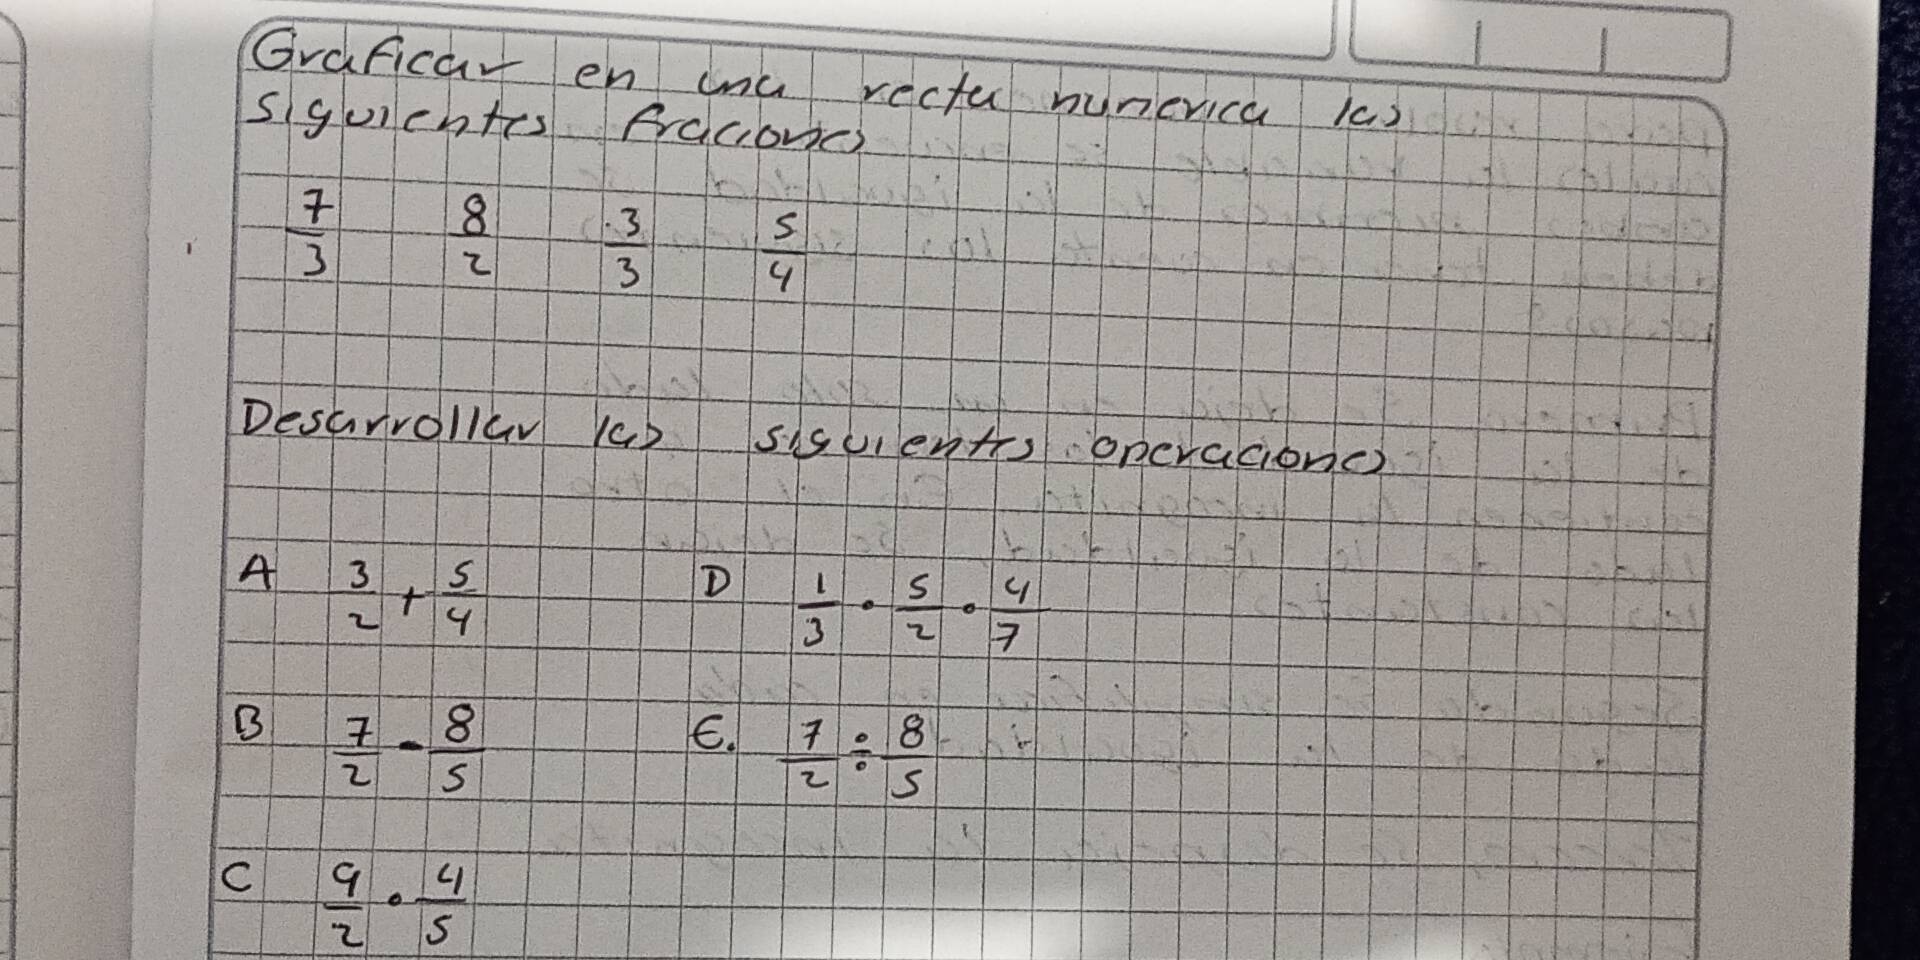 Graficar en una recta numerica las
siguientes fraciones
7/3 8/2 3/3 5/4
Desarrollar las siguientes operaciones
A 3/2 + 5/4 D 1/3 · 5/2 · 4/7
B 7/2 - 8/5 E. 7/2 ÷ 8/5
C 9/2 · 4/5